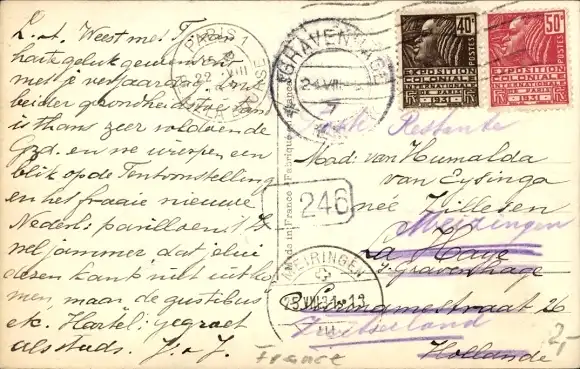 L. A. Weest met Tj. van
harte geluk gewenscht
met je verjaardag. Ons
beider gezondheidstoestand
is thans zeer voldoende
Gzd. en we wierpen een
blik op de Tentoonstelling
en het fraaie nieuwe
Nederl: pavilloen st. 't Is
wel jammer dat jelui
dezen kant niet uit ko
men, maar de gustibus
etc. Hartel: gegroet
als steeds. J. v. J.
France
PARIS 1
22 VIII
'SGRAVENHAGE
24 VIII
40c POSTES
EXPOSITION
COLONIALE
INTERNATIONALE
PARIS
1931
50c POSTES
EXPOSITION
COLONIALE
INTERNATIONALE
DE PARIS
1931
Poste Restante
Mad: van Humalda
van Eysinga
née Tillesen
Meiringen
La Haye
's Gravenhage
Surinamestraat 26
Zwitserland
Hollande
246
MEIRINGEN
Made in France
Fabriqué en France
2,-